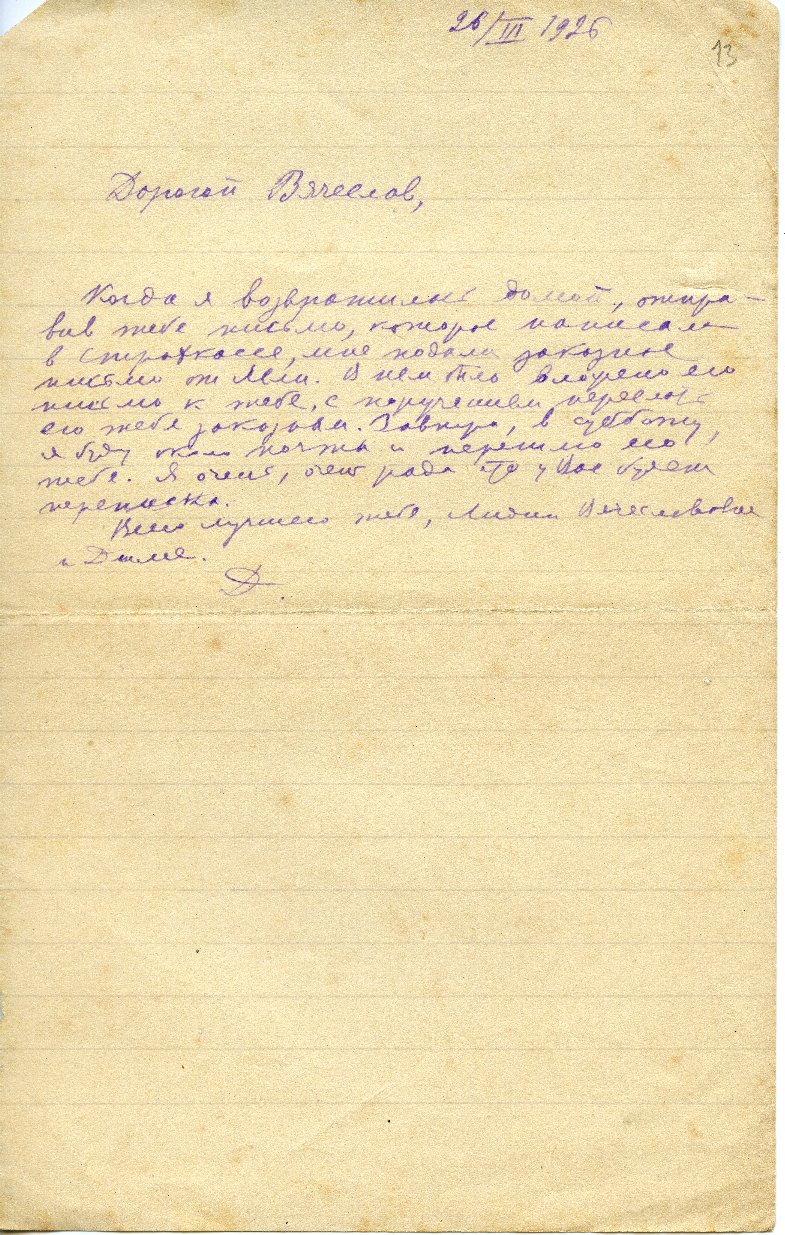 26/III 1926
13
Дорогой Вячеслав,
Когда я возвратилась домой, отпра-
вив тебе письмо, которое написала
в страхкассе, мне подали заказное
письмо от Лели. В нем было вложено его
письмо к тебе, с поручением переслать
его тебе заказным. Завтра, в субботу,
я буду около почты и перешлю его
тебе. Я очень, очень рада что у Вас будет
переписка.
Всего лучшего тебе, Лидии Вячеславовне
и Диме.